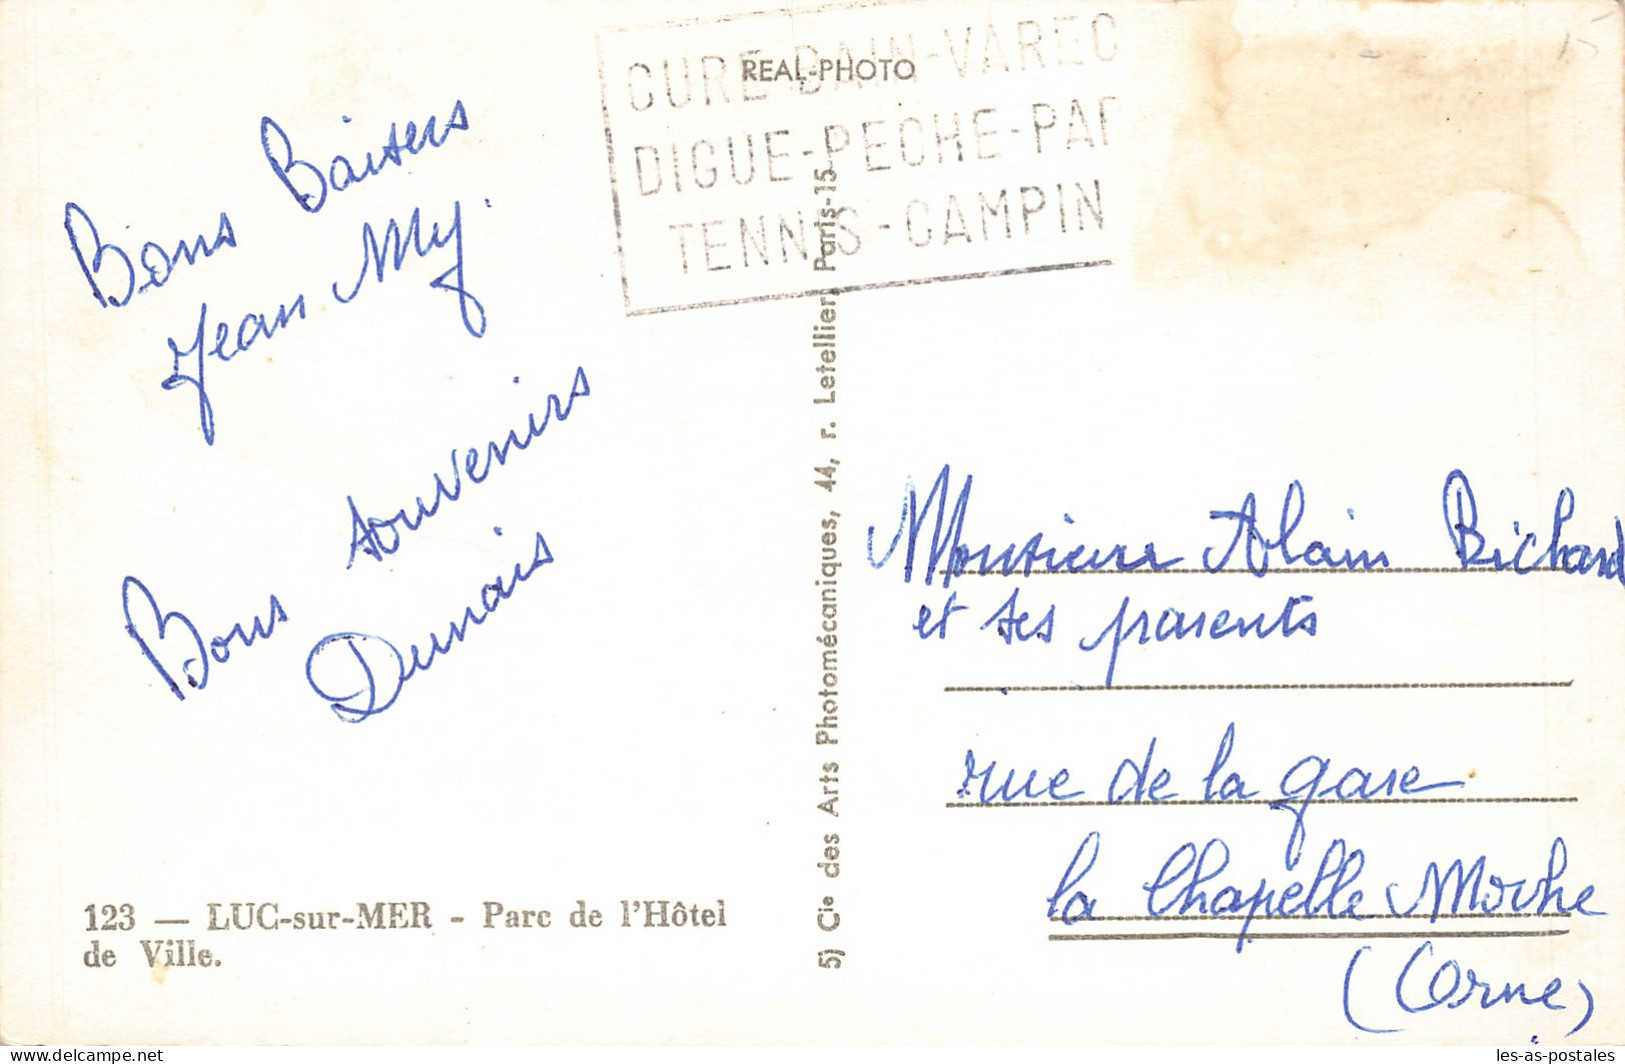 CURE-BAIN-VAREC
DIGUE-PECHE-PAR
TENNIS-CAMPIN
REAL-PHOTO
Bons Baisers
Jean My.
Bons souvenirs
Dunais
123 — LUC-sur-MER - Parc de l'Hôtel
de Ville.
5) Cie des Arts Photomécaniques, 44, r. Letellier, Paris-15
Monsieur Alain Bichard
et ses parents
rue de la gare
la Chapelle Moche
(Orne)
15
les-as-postales